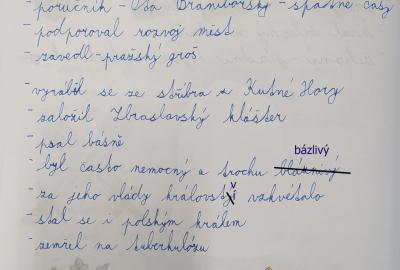 - poručník - Ota Braniborský - špatné časy
- podporoval rozvoj měst
- zavedl - pražský groš
- vyráběl se ze stříbra z Kutné Hory
- založil Zbraslavský klášter
- psal básně
bázlivý
- byl často nemocný a trochu bláznivý
v
- za jeho vlády královstyí vzkvétalo
- stal se i polským králem
- zemřel na tuberkulózu